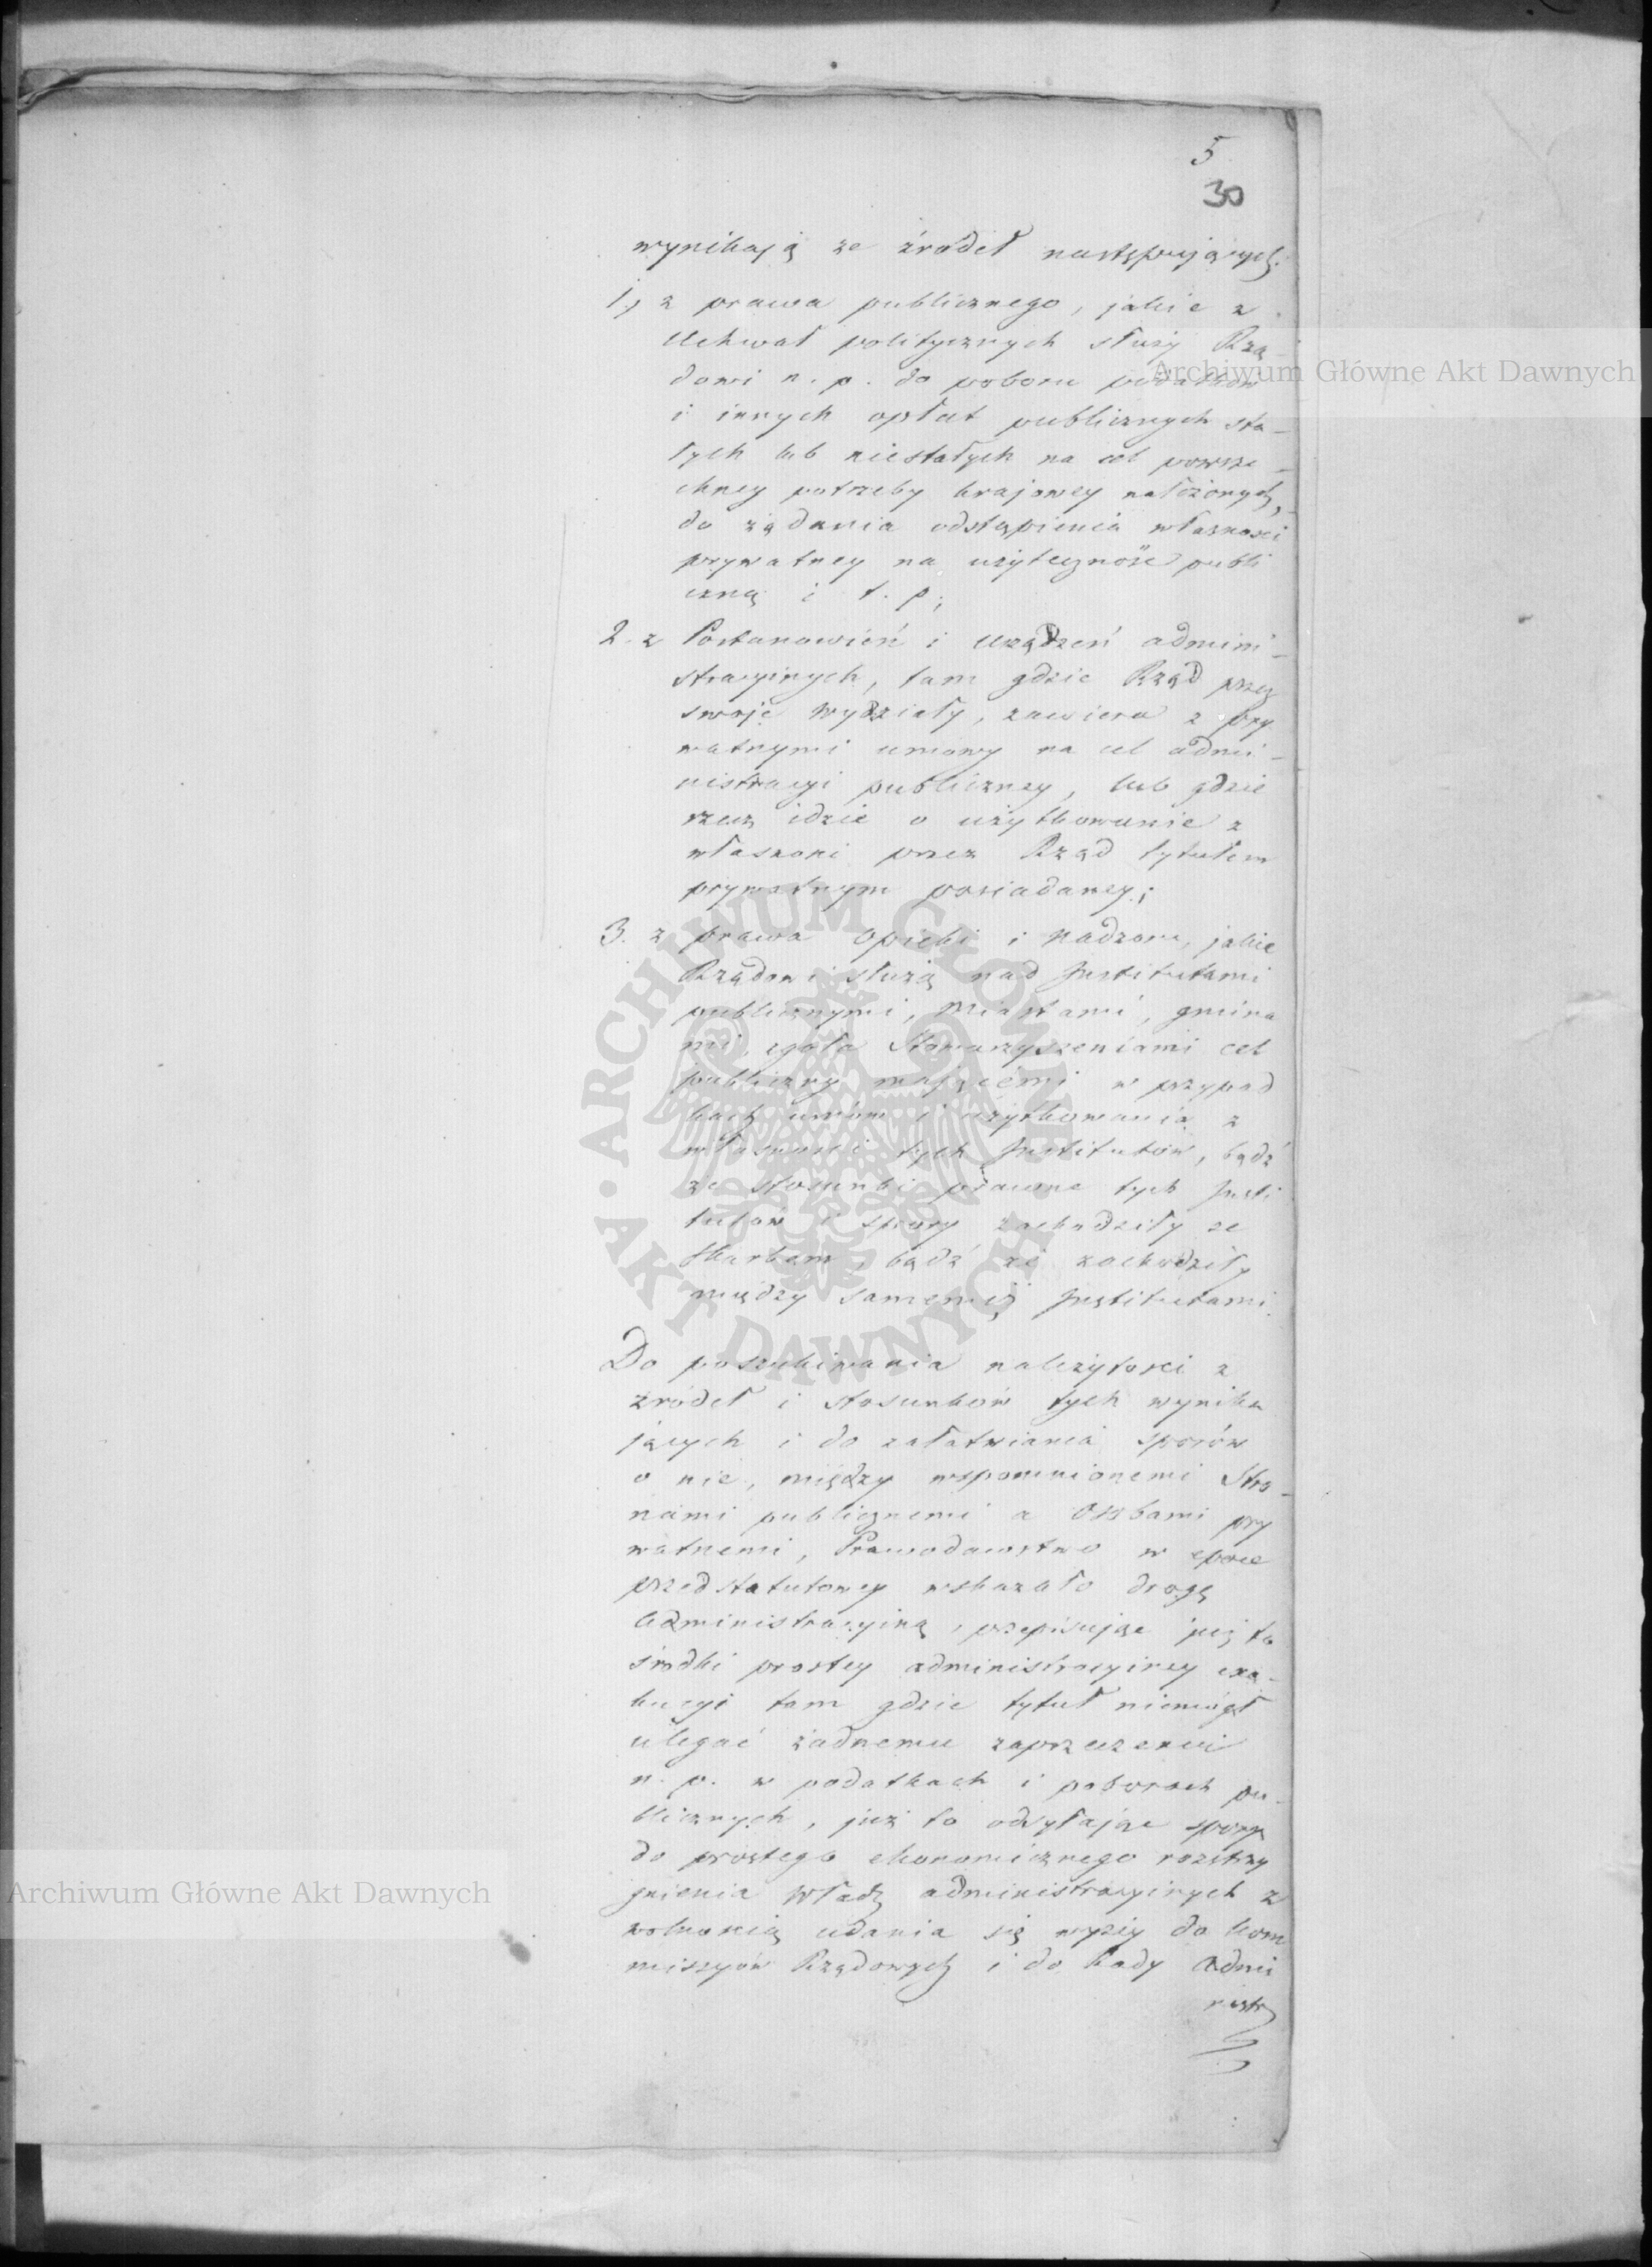 5
30
wynikają ze źródeł następujących:
1, z prawa publicznego, jakie z
Uchwał politycznych służy Rzą-
dowi n. p. do poboru podatków
i innych opłat publicznych sta-
łych lub niestałych na cel powsze-
chney potrzeby krajowey nałożonych,
do żądania odstąpienia własności
prywatney na użyteczność publi
czną i t. p;
2. z Postanowień i Urządzeń admini-
stracyinych, tam gdzie Rząd przez
swoje Wydziały, zawiera z pry
watnymi umowy na cel admi-
nistracyi publiczney, lub gdzie
rzecz idzie o użytkowanie z
własności przez Rząd tytułem
prywatnym posiadaney;
3. z prawa Opieki i Nadzoru, jakie
Rządowi służą nad Institutami
publicznymi, Miastami, gmina
mi, zgoła Stowarzyszeniami cel
publiczny mającemi w przypad
kach umów i użytkowania z
własności tych Institutów, bądź
ze stosunki prawne tych Insti
tutów i spory zachodziły ze
Skarbem, bądź że zachodziły
między samemiż Institutami.
Do poszukiwania należytości z
źródeł i stosunków tych wynika
jących i do załatwiania sporów
o nie, między wspomnionemi Stro-
nami publicznemi a Osobami pry
watnemi, Prawodawstwo w epoce
przedstatutowey wskazało drogę
Administracyiną, przepisując już to
środki prostey administracyiney exe-
kucyi tam gdzie tytuł niemógł
ulegać żadnemu zaprzeczeniu
n. p. w podatkach i poborach pu-
blicznych, już to odsyłając spory
do prostego ekonomicznego rozstrzy
gnienia Władz administracyinych z
wolnością udania się wyżey do Kom
missyów Rządowych i do Rady Admi
nistr
Archiwum Główne Akt Dawnych
Archiwum Główne Akt Dawnych
ARCHIWUM GŁÓWNE AKT DAWNYCH